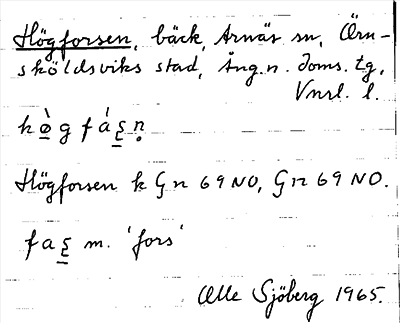 Högforsen, bäck, Arnäs sn, Örn-
sköldsviks stad, Ång. n. doms. tg,
Vnrl. l.
Högforsen k Gn 69 NO, Gn 69 NO.
m. 'fors'
Olle Sjöberg 1965.